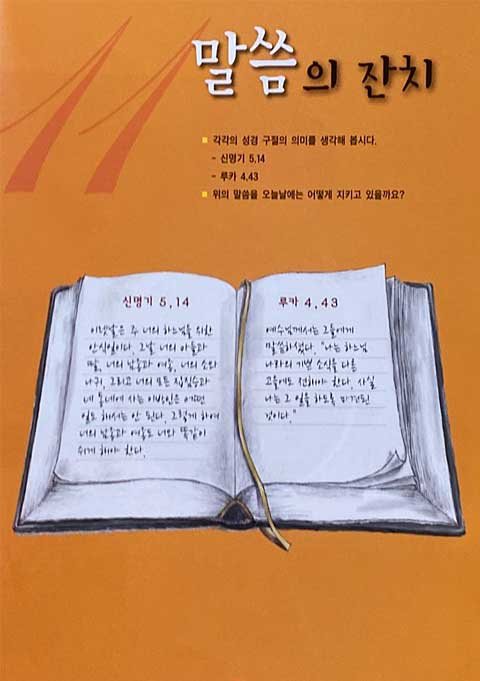 말씀의 잔치
각각의 성경 구절의 의미를 생각해 봅시다.
- 신명기 5,14
- 루카 4,43
위의 말씀을 오늘날에는 어떻게 지키고 있을까요?
신명기 5,14
이렛날은 주 너의 하느님을 위한
안식일이다. 그날 너의 아들과
딸, 너의 남종과 여종, 너의 소와
나귀, 그리고 너의 모든 집짐승과
네 동네에 사는 이방인은 어떤
일도 해서는 안 된다. 그렇게 하여
너의 남종과 여종도 너와 똑같이
쉬게 해야 한다.
루카 4,43
예수님께서는 그들에게
말씀하셨다. "나는 하느님
나라의 기쁜 소식을 다른
고을에도 전해야 한다. 사실
나는 그 일을 하도록 파견된
것이다."